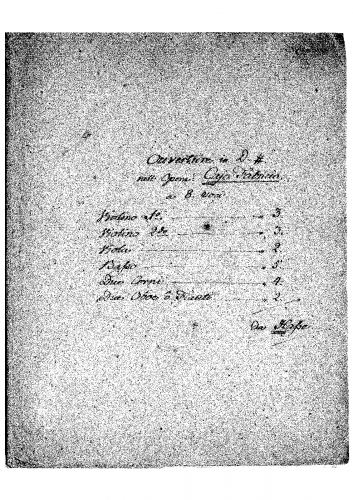 Ouverture in D. #
nell' Opera: Cajo Fabricio
a 8. voci
Violino 1mo. 3.
Violino 2do 3.
Viola 2
Basso 5.
Due Corni 4.
Due Oboe o Flauti 2.
Del Hasse